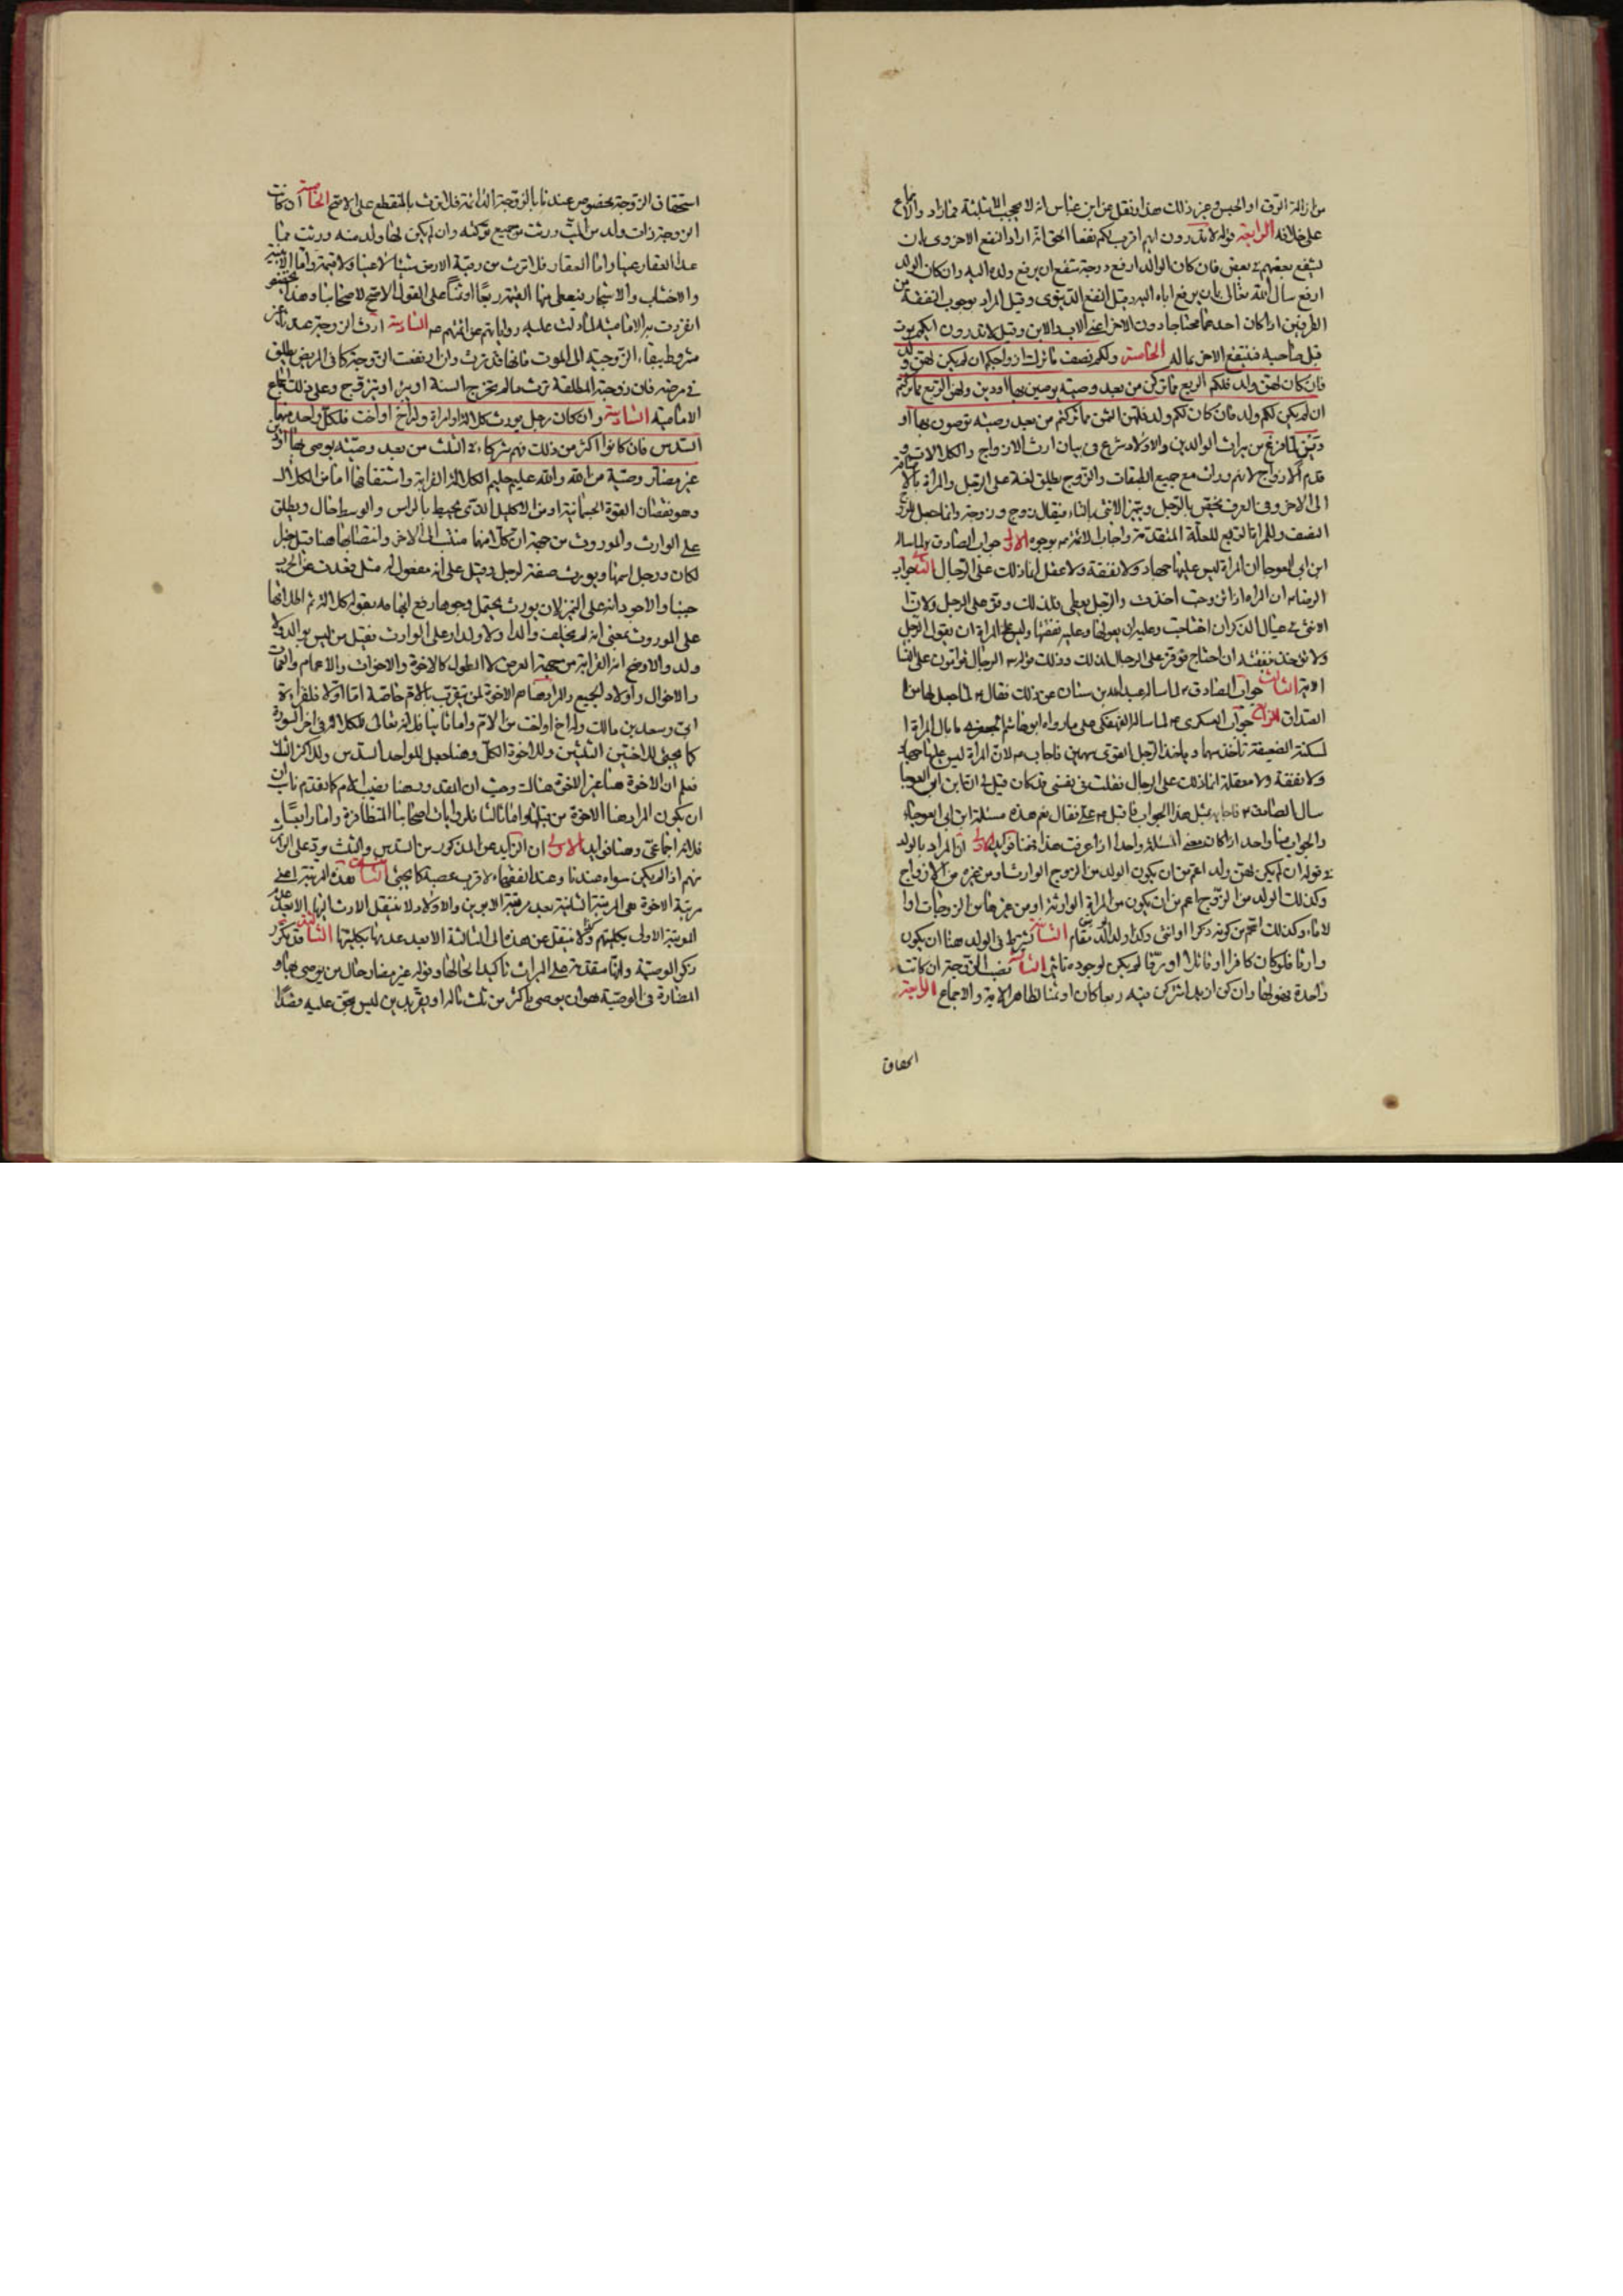 من ازالة الرق او الحبس وغير ذلك هذا ونقل عن ابن عباس انه لا يحجب الا ثلثة فما زاد والاجماع
على خلافه الرابعة قوله لا تدرون ايهم اقرب لكم نفعا الحق انه اراد النفع الاخروى بان
يشفع بعضهم فى بعض فان كان الوالد ارفع درجة شفع ان يرفع ولده اليه وان كان الولد
ارفع سال الله تعالى بان يرفع اباه اليه وقيل النفع الدنيوى وقيل المراد بوجوب النفقة من
الطرفين اذا كان احدهما محتاجا دون الاخر اعنى الاب والابن وقيل لا تدرون ايكم يموت
قبل صاحبه فينتفع الاخر بماله الخامسة ولكم نصف ما ترك ازواجكم ان لم يكن لهن ولد
فان كان لهن ولد فلكم الربع مما تركن من بعد وصية يوصين بها او دين ولهن الربع مما تركتم
ان لم يكن لكم ولد فان كان لكم ولد فلهن الثمن مما تركتم من بعد وصية توصون بها او
دين لما فرغ من ميراث الوالدين والاولاد شرع فى بيان ارث الازواج والكلالات و
قدم الازواج لانهم يرثون مع جميع الطبقات والزوج يطلق لغة على الرجل والمراة بالاضافة
الى الاخر وفى العرف يختص بالرجل ويميز الانثى بالتاء فيقال زوج وزوجة وانما جعل للزوج
النصف وللمراة الربع للعلة المتقدمة واجاب الائمة ع بوجوه الاول جواب الصادق ع لما ساله
ابن ابى العوجا ان المراة ليس عليها جهاد ولا نفقة ولا عقل انما ذلك على الرجال الثانى جواب
الرضا ع ان المراة اذا تزوجت اخذت والرجل يعطى فلذلك وفر على الرجل ولان
الانثى فى عيال الذكر ان احتاجت وعليه ان يعولها وعليه نفقتها وليس على المراة ان تعول الرجل
ولا تؤخذ بنفقته ان احتاج فوفر على الرجال لذلك وذلك قوله الرجال قوامون على النساء
الاية الثالث جواب الصادق ع لما ساله عبد الله بن سنان عن ذلك فقال ع لما جعل لها من
الصداق الرابع جواب العسكرى ع لما ساله الفهفكى على ما رواه ابو هاشم الجعفرى ما بال المراة
المسكينة الضعيفة تاخذ سهما وياخذ الرجل القوى سهمين فاجاب ع لان المراة ليس عليها جهاد
ولا نفقة ولا معقلة انما ذلك على الرجال فقلت فى نفسى قد كان قيل لى ان ابن ابى العوجا
سال الصادق ع فاجابه بمثل هذا الجواب فاقبل ع على فقال نعم هذه مسئلة ابن ابى العوجاء
والجواب منا واحد اذا كان معنى المسئلة واحدا اذا عرفت هذا فهنا فوائد الاولى ان المراد بالولد
فى قوله ان لم يكن لهن ولد اعم من ان يكون الولد من الزوج الوارث او من غيره من الازواج
وكذلك الولد من الزوج اعم من ان يكون من المراة الوارثة او من غيرها من الزوجات او
الاماء وكذلك اعم من كونه ذكرا او انثى وكذا ولد الولد يقوم مقام الثانية يشترط فى الولد هنا ان يكون
وارثا فلو كان كافرا او قاتلا او رقا لم يكن لوجوده تاثير الثالثة نصيب الزوجة ان كانت
واحدة فهو لها وان كن ازيد اشتركن فيه ربعا كان او ثمنا لظاهر الاية والاجماع الرابعة
استحقاق
استحقاق الزوجة مخصوص عندنا بالزوجة الدائمة فلا ترث بالمنقطع على الاصح الخامسة ان كانت
الزوجة ذات ولد من الميت ورثت من جميع تركته وان لم يكن لها ولد منه ورثت مما
عدا العقار عينا واما العقار فلا ترث من رقبة الارض شيئا لا عينا ولا قيمة واما الابنية
والاخشاب والاشجار فيعطى منها القيمة ربعا او ثمنا على القول الاصح لاصحابنا وهذا
انفردت به الامامية لما دلت عليه رواياتهم عن ائمتهم ع السادسة ارث الزوجة عندنا غير
مشروط ببقاء الزوجية الى الموت فانها قد ترث وان ارتفعت الزوجة كما فى المريض يطلق
فى مرضه فان زوجته المطلقة ترث ما لم يخرج السنة او يبرء او تتزوج وعلى ذلك اجماع
الامامية السادسة وان كان رجل يورث كلالة او امراة وله اخ او اخت فلكل واحد منهما
السدس فان كانوا اكثر من ذلك فهم شركاء فى الثلث من بعد وصية يوصى بها او دين
غير مضار وصية من الله والله عليم حليم الكلالة القرابة واشتقاقها اما من الكلال
وهو نقصان القوة الجسمانية او من الاكليل الذى يحيط بالراس والوسط خال ويطلق
على الوارث والموروث من جهة ان كلا منها منتسب الى الاخر وانتصابها هنا قيل خبر
لكان ورجل اسمها ويورث صفة لرجل وقيل على انه مفعول له مثل قعدت عن الحرب
جبنا والاجود انه على التمييز لان يورث يحتمل وجوها رفع ابهامه بقوله كلالة ثم اطلاقها
على الموروث بمعنى انه لم يخلف والدا ولا ولدا وعلى الوارث فقيل من ليس بوالد ولا
ولد والاوضح انه القرابة من جهة العرض لا الطول كالاخوة والاخوات والاعمام والعمات
والاخوال واولاد الجميع والمراد هنا هم الاخوة لمن يتقرب بالام خاصة اما اولا فلقراءة
ابى وسعد بن مالك وله اخ او اخت من الام واما ثانيا فلانه تعالى للكلالة فى اخر السورة
كما يجئ للاختين الثلثين وللاخوة الكل وهنا جعل للواحد السدس وللاكثر الثلث
فعلم ان الاخوة هنا غير الاخوة هناك وحيث ان المقدور هنا نصيب الام كما تقدم ناسب ان
ان يكون المراد هنا الاخوة من قبلها واما ثالثا فلروايات اصحابنا المتظافرة واما رابعا
فلانه اجماعى وهنا فوائد الاولى ان الزايد عن المذكور من السدس والثلث يرد على الوارث
منهم اذا لم يكن سواه عندنا وعند الفقهاء لاقرب عصبة كما يجئ الثانية هذه المرتبة اعنى
مرتبة الاخوة هى المرتبة الثانية بعد مرتبة الابوين والاولاد ولا ينتقل الارث اليها الا بعد عدم
المرتبة الاولى بكليتهم ولا ينتقل عن هذه الى الثالثة الا بعد عدمها بكليتها الثالثة قد تكرر
ذكر الوصية وانها متقدمة على الميراث تاكيدا لحالها وقوله غير مضار حال من يوصى بها و
المضارة فى الوصية هو ان يوصى باكثر من ثلث ماله او يقر بدين ليس بحق عليه قصدا